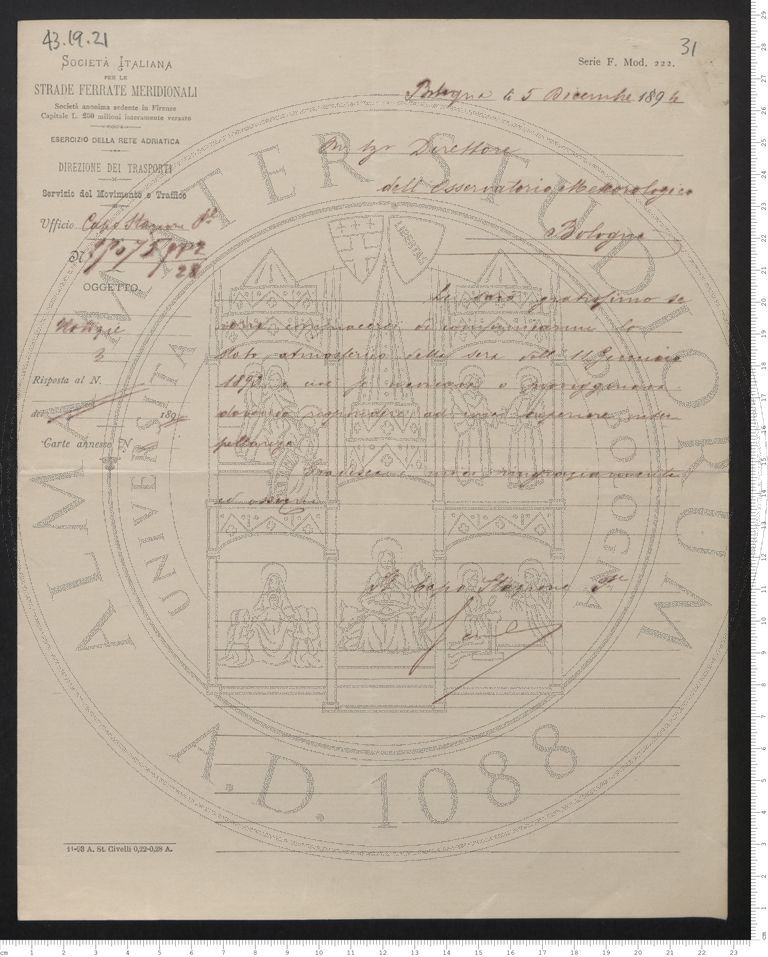 43.19.21
31
SOCIETÀ ITALIANA
PER LE
STRADE FERRATE MERIDIONALI
Società anonima sedente in Firenze
Capitale L. 250 milioni interamente versato
ESERCIZIO DELLA RETE ADRIATICA
DIREZIONE DEI TRASPORTI
Servizio del Movimento e Traffico
Ufficio Capo Stazione
N.
28
OGGETTO
Notizie
3
Risposta al N.
del 189
Carte annesse N.
Serie F. Mod. 222.
Bologna li 5 Dicembre 1894
Direttore
dell'Osservatorio Meteorologico
Bologna
Le sarò gratissimo se
vorrà di comunicarmi lo
stato atmosferico della sera dell' 11 Gennaio
1893 e cioè se nevicava o
dovendo rispondere ad una superiore inter
pellanza.
ringraziamenti
ed ossequi
Il Capo Stazione
11-93 A. St. Civelli 0,22-0,28 A.
ALMA MATER STUDIORUM
UNIVERSITÀ DI BOLOGNA
LIBERTAS
A.D. 1088